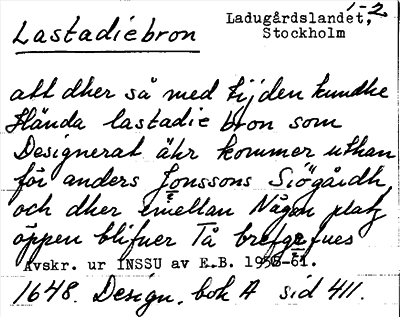 Lastadiebron
Ladugårdslandet, 1-2
Stockholm
att dher så med tijden kundhe
Hända lastadie bron som
Designerat ähr kommer uthan
för anders Jonssons Siögårdh
och dher emellan Någon platz
öppen blifuer Tå brefgefues
?
Avskr. ur INSSU av E.B. 1958-61.
1648. Design. bok A sid 411.